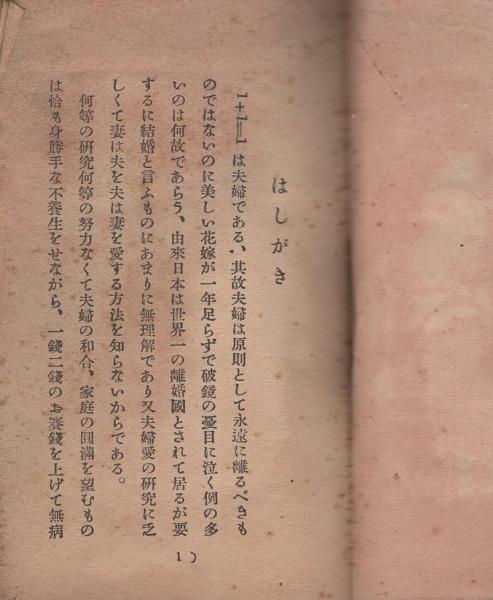 はしがき
1+1=1は夫婦である、其故夫婦は原則として永遠に離るべきも
のではないのに美しい花嫁が一年足らずで破鏡の憂目に泣く例の多
いのは何故であらう、由來日本は世界一の離婚國とされて居るが要
するに結婚と言ふものにあまりに無理解であり又夫婦愛の研究に乏
しくて妻は夫を夫は妻を愛する方法を知らないからである。
何等の研究何等の努力なくて夫婦の和合、家庭の圓滿を望むもの
は恰も身勝手な不養生をせながら、一錢二錢のお賽錢を上げて無病
1)